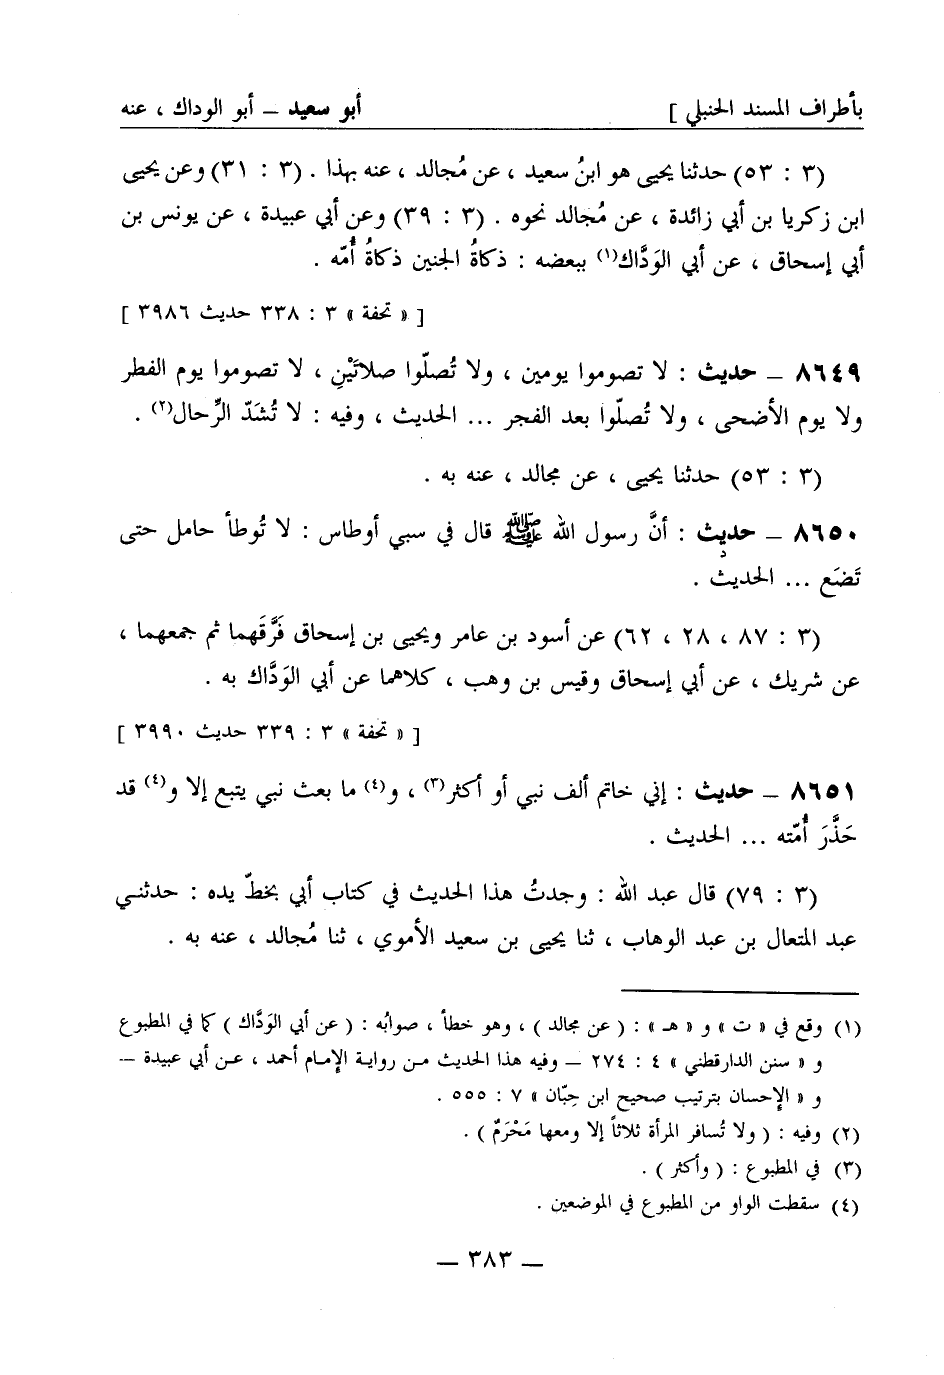 بأطراف المسند الحنبلي ] أبو سعيد – أبو الوداك ، عنه
(٣ : ٥٣) حدثنا يحيى هو ابنُ سعيد ، عن مُجالد ، عنه بهذا . (٣ : ٣١) وعن يحيى
ابن زكريا بن أبي زائدة ، عن مُجالد نحوه . (٣ : ٣٩) وعن أبي عبيدة ، عن يونس بن
أبي إسحاق ، عن أبي الوَدَّاك(١) ببعضه : ذكاةُ الجنين ذكاةُ أُمّه .
[ « تحفة » ٣ : ٣٣٨ حديث ٣٩٨٦ ]
٨٦٤٩ – حديث : لا تصوموا يومين ، ولا تُصلّوا صلاتَيْنِ ، لا تصوموا يوم الفطر
ولا يوم الأضحى ، ولا تُصلّوا بعد الفجر ... الحديث ، وفيه : لا تُشَدّ الرِّحال(٢) .
(٣ : ٥٣) حدثنا يحيى ، عن مجالد ، عنه به .
٨٦٥٠ – حديث : أنَّ رسول الله ﷺ قال في سبي أوطاس : لا تُوطأ حامل حتى
تَضَع ... الحديث .
(٣ : ٨٧ ، ٢٨ ، ٦٢) عن أسود بن عامر ويحيى بن إسحاق فَرَّقَهما ثم جمعهما ،
عن شريك ، عن أبي إسحاق وقيس بن وهب ، كلاهما عن أبي الوَدَّاك به .
[ « تحفة » ٣ : ٣٣٩ حديث ٣٩٩٠ ]
٨٦٥١ – حديث : إني خاتم ألف نبي أو أكثر(٣) ، و(٤) ما بعث نبي يتبع إلا و(٤) قد
حَذَّرَ أُمّته ... الحديث .
(٣ : ٧٩) قال عبد الله : وجدتُ هذا الحديث في كتاب أبي بخطّ يده : حدثني
عبد المتعال بن عبد الوهاب ، ثنا يحيى بن سعيد الأموي ، ثنا مُجالد ، عنه به .
(١) وقع في « ت » و « هـ » : ( عن مجالد ) ، وهو خطأ ، صوابُه : ( عن أبي الوَدَّاك ) كما في المطبوع
و « سنن الدارقطني » ٤ : ٢٧٤ – وفيه هذا الحديث من رواية الإمام أحمد ، عن أبي عبيدة –
و « الإحسان بترتيب صحيح ابن حِبّان » ٧ : ٥٥٥ .
(٢) وفيه : ( ولا تُسافر المرأة ثلاثاً إلا ومعها مَحْرَمٌ ) .
(٣) في المطبوع : ( وأكثر ) .
(٤) سقطت الواو من المطبوع في الموضعين .
– ٣٨٣ –